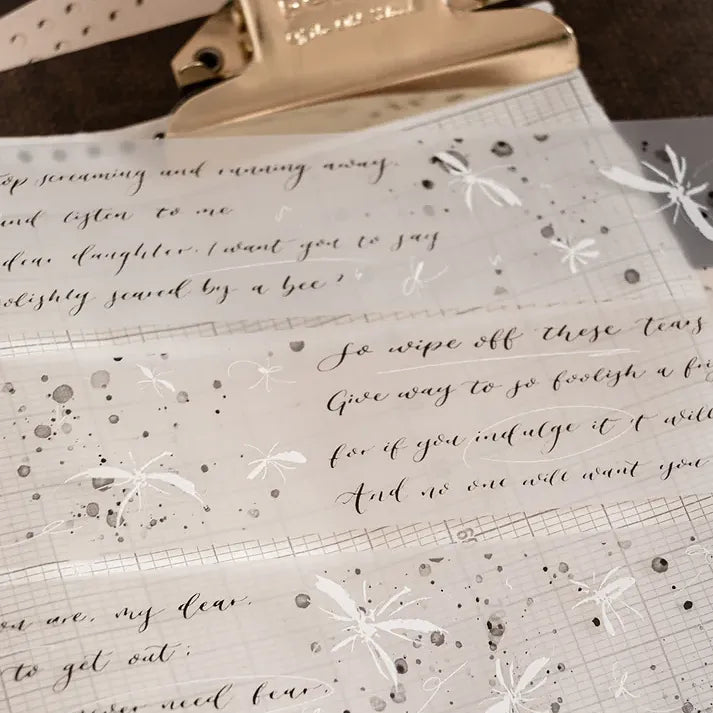 top screaming and running away.
and listen to me
dear daughter. I want you to say
foolishly scared by a bee?
So wipe off these tears
Give way to so foolish a
for if you indulge it it will
And no one will want you
you are, my dear.
to get out;
never need fear,